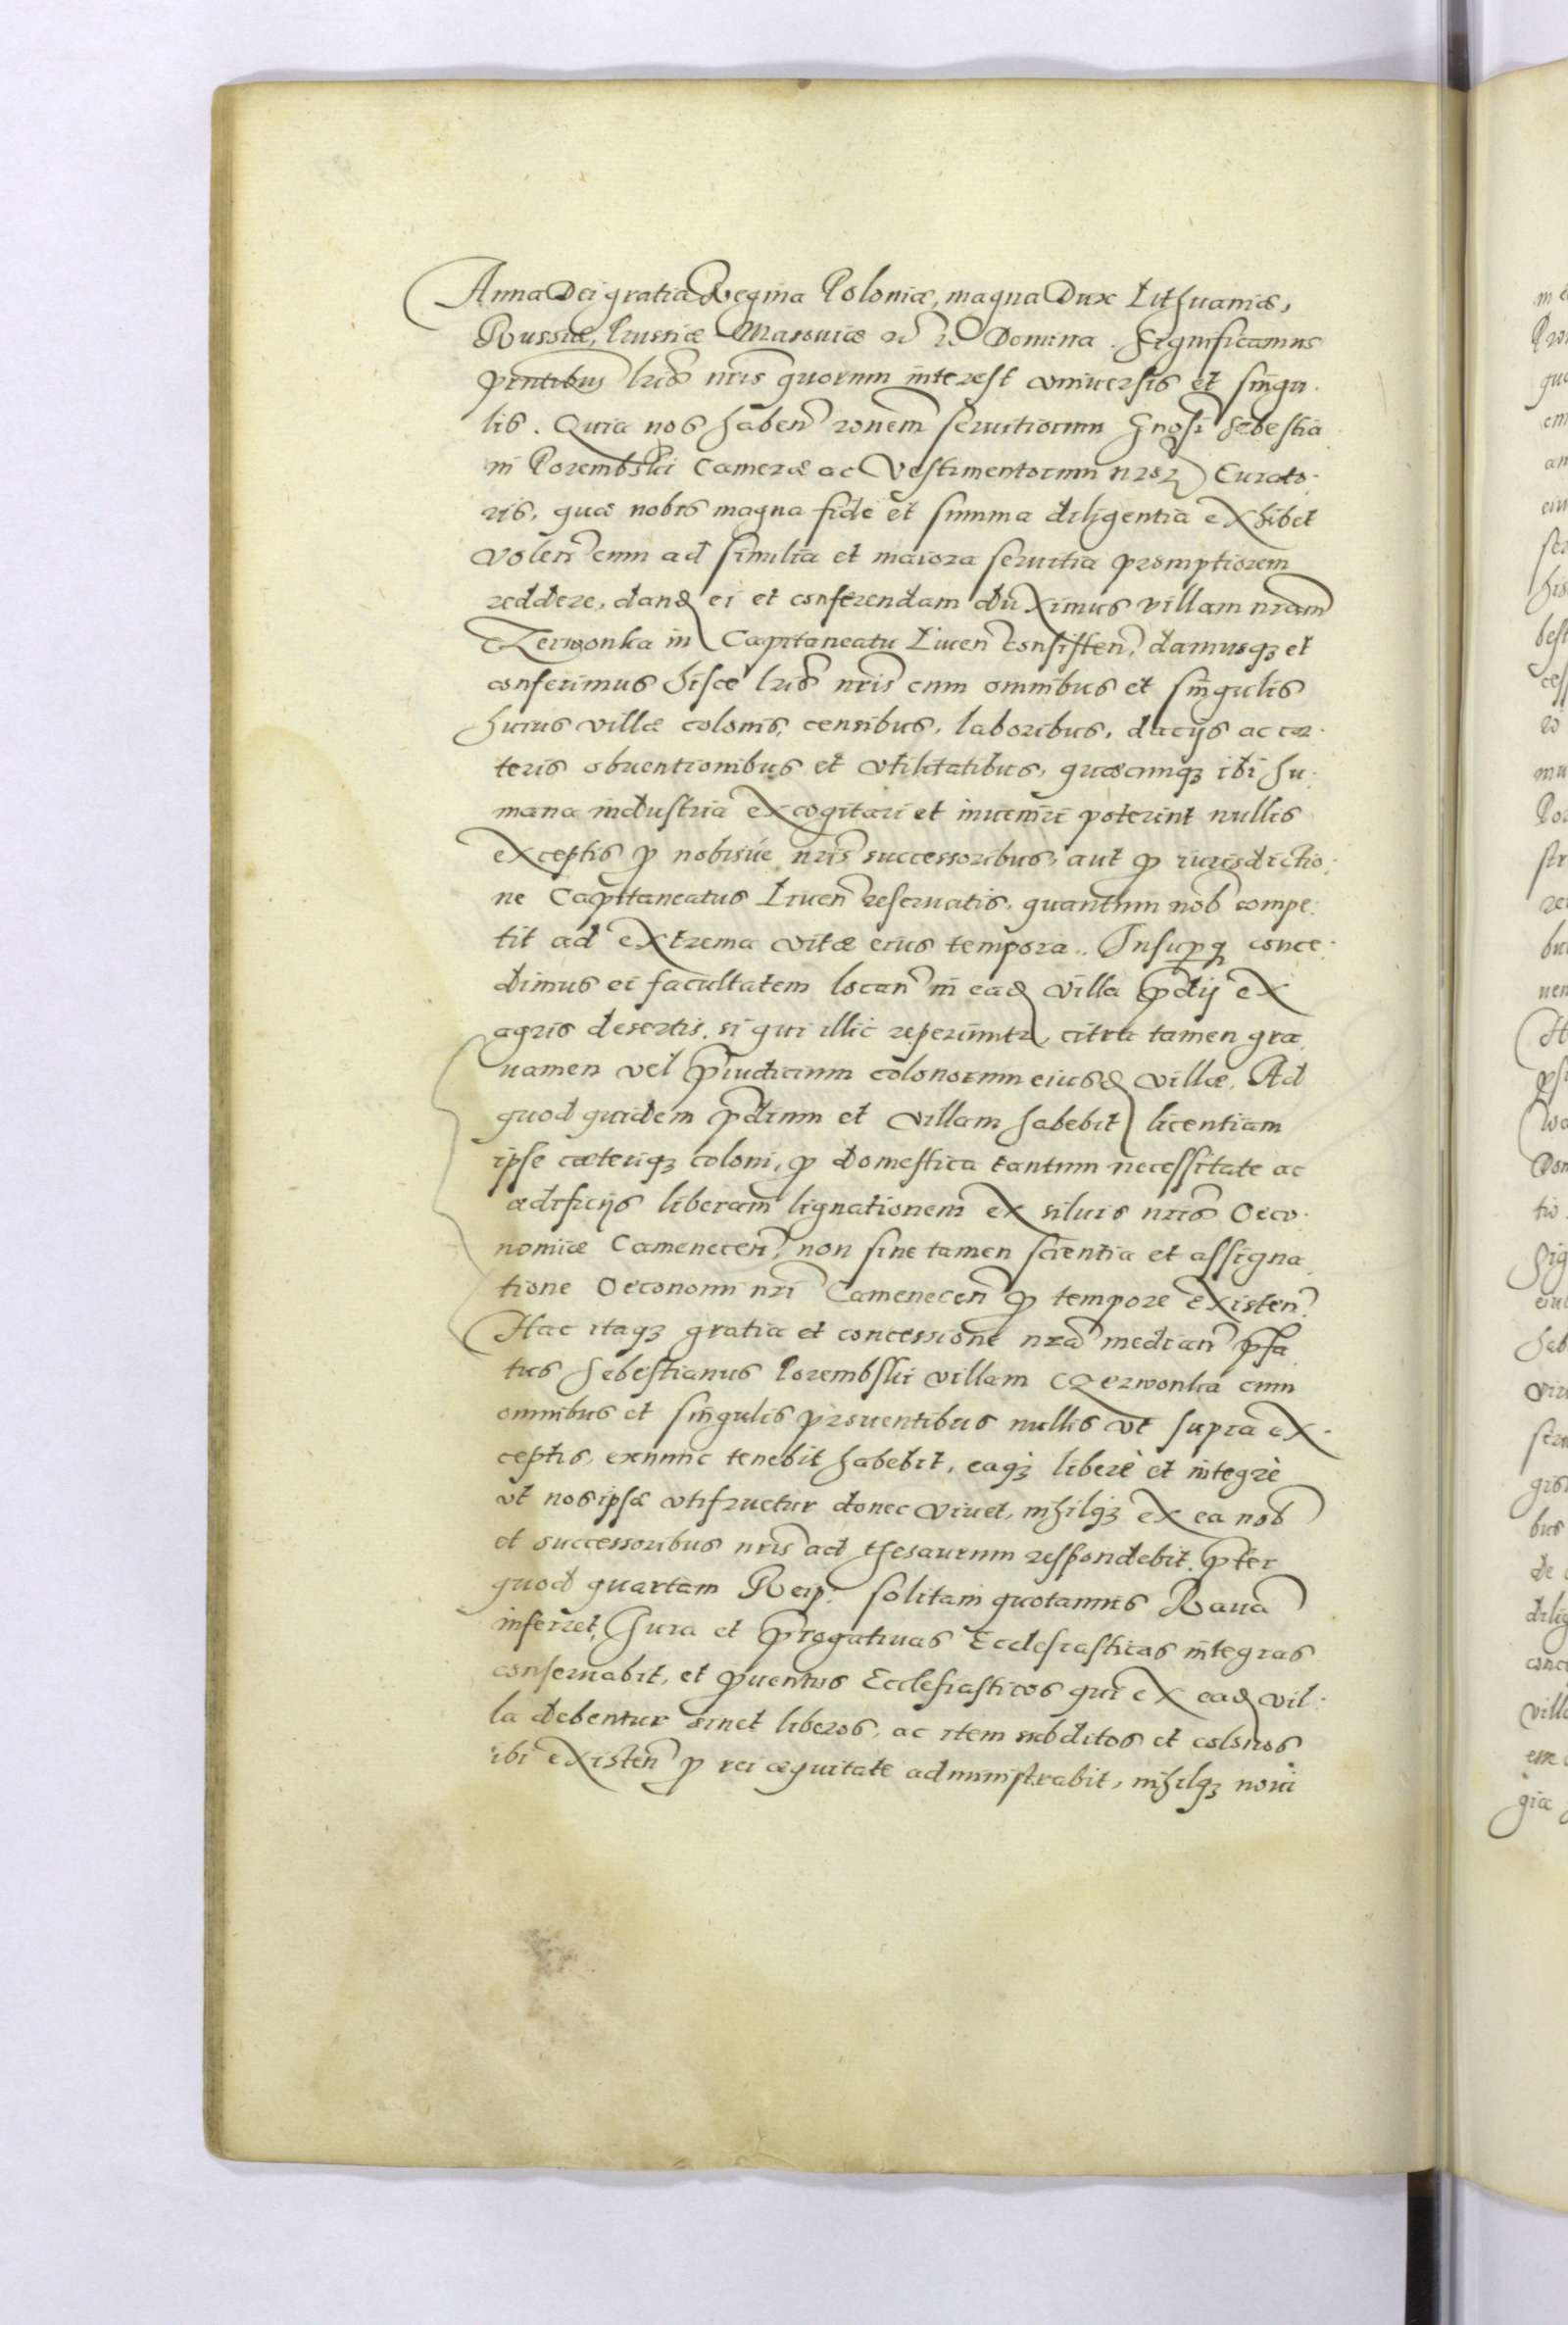 Anna Dei gratia Regina Poloniæ, magna Dux Lithuaniæ,
Russiæ, Prussiæ Masouiæ Domina. Significamus
pntibus lris nris quorum interest vniuersis et singu.
lis. Quia nos haben ronem seruitiorum Gnosi Sebestia
ni Porembski Cameræ ac Vestimentorum nror Curato.
ris, quæ nobis magna fide et summa diligentia exhibet
volen eum ad similia et maiora seruitia promptiorem
reddere, dand ei et conferendam duximus villam nram
CZerwonka in Capitaneatu Liuen consisten, damusq et
conferimus hisce lris nris cum omnibus et singulis
huius villæ colonis, censibus, laboribus, dacijs ac cæ.
teris obuentionibus et vtilitatibus, quæcunq ibi hu.
mana industria excogitari et inueniri poterint nullis
exceptis p nobisúe nris successoribus, aut p iurisdictio.
ne Capitaneatus Liuen reseruatis, quantum nob compe.
tit ad extrema vitæ eius tempora. Insuperq conce.
dimus ei facultatem locan in ead villa pdij ex
agris desertis, si qui illic reperiuntr, citra tamen gra.
uamen vel piudicium colonorum eiusd villæ. Ad
quod quidem pdium et villam habebit licentiam
ipse cæteriq coloni, p domestica tantum necessitate ac
ædificijs liberam lignationem ex siluis nris Oeco.
nomiæ Camenecen, non sine tamen scientia et assigna.
tione Oeconomi nri Camenecen p tempore existen.
Hac itaq gratia et concessione nra median pfa
tus Sebestianus Porembski villam CZerwonka cum
omnibus et singulis prouentibus nullis vt supra ex.
ceptis, exnunc tenebit habebit, eaq liberè et integrè
vt nos ipsæ vtifruetur donec viuet, nihilq ex ea nob
et successoribus nris ad thesaurum respondebit. pter
quod quartam Reip. solitam quotannis Raua
inferret, Jura et progatiuas Ecclesiasticas integras
conseruabit, et puentus Ecclesiasticos qui ex ead vil.
la debentur sinet liberos, ac item subditos et colonos
ibi existen p rei æquitate administrabit, nihilq noui